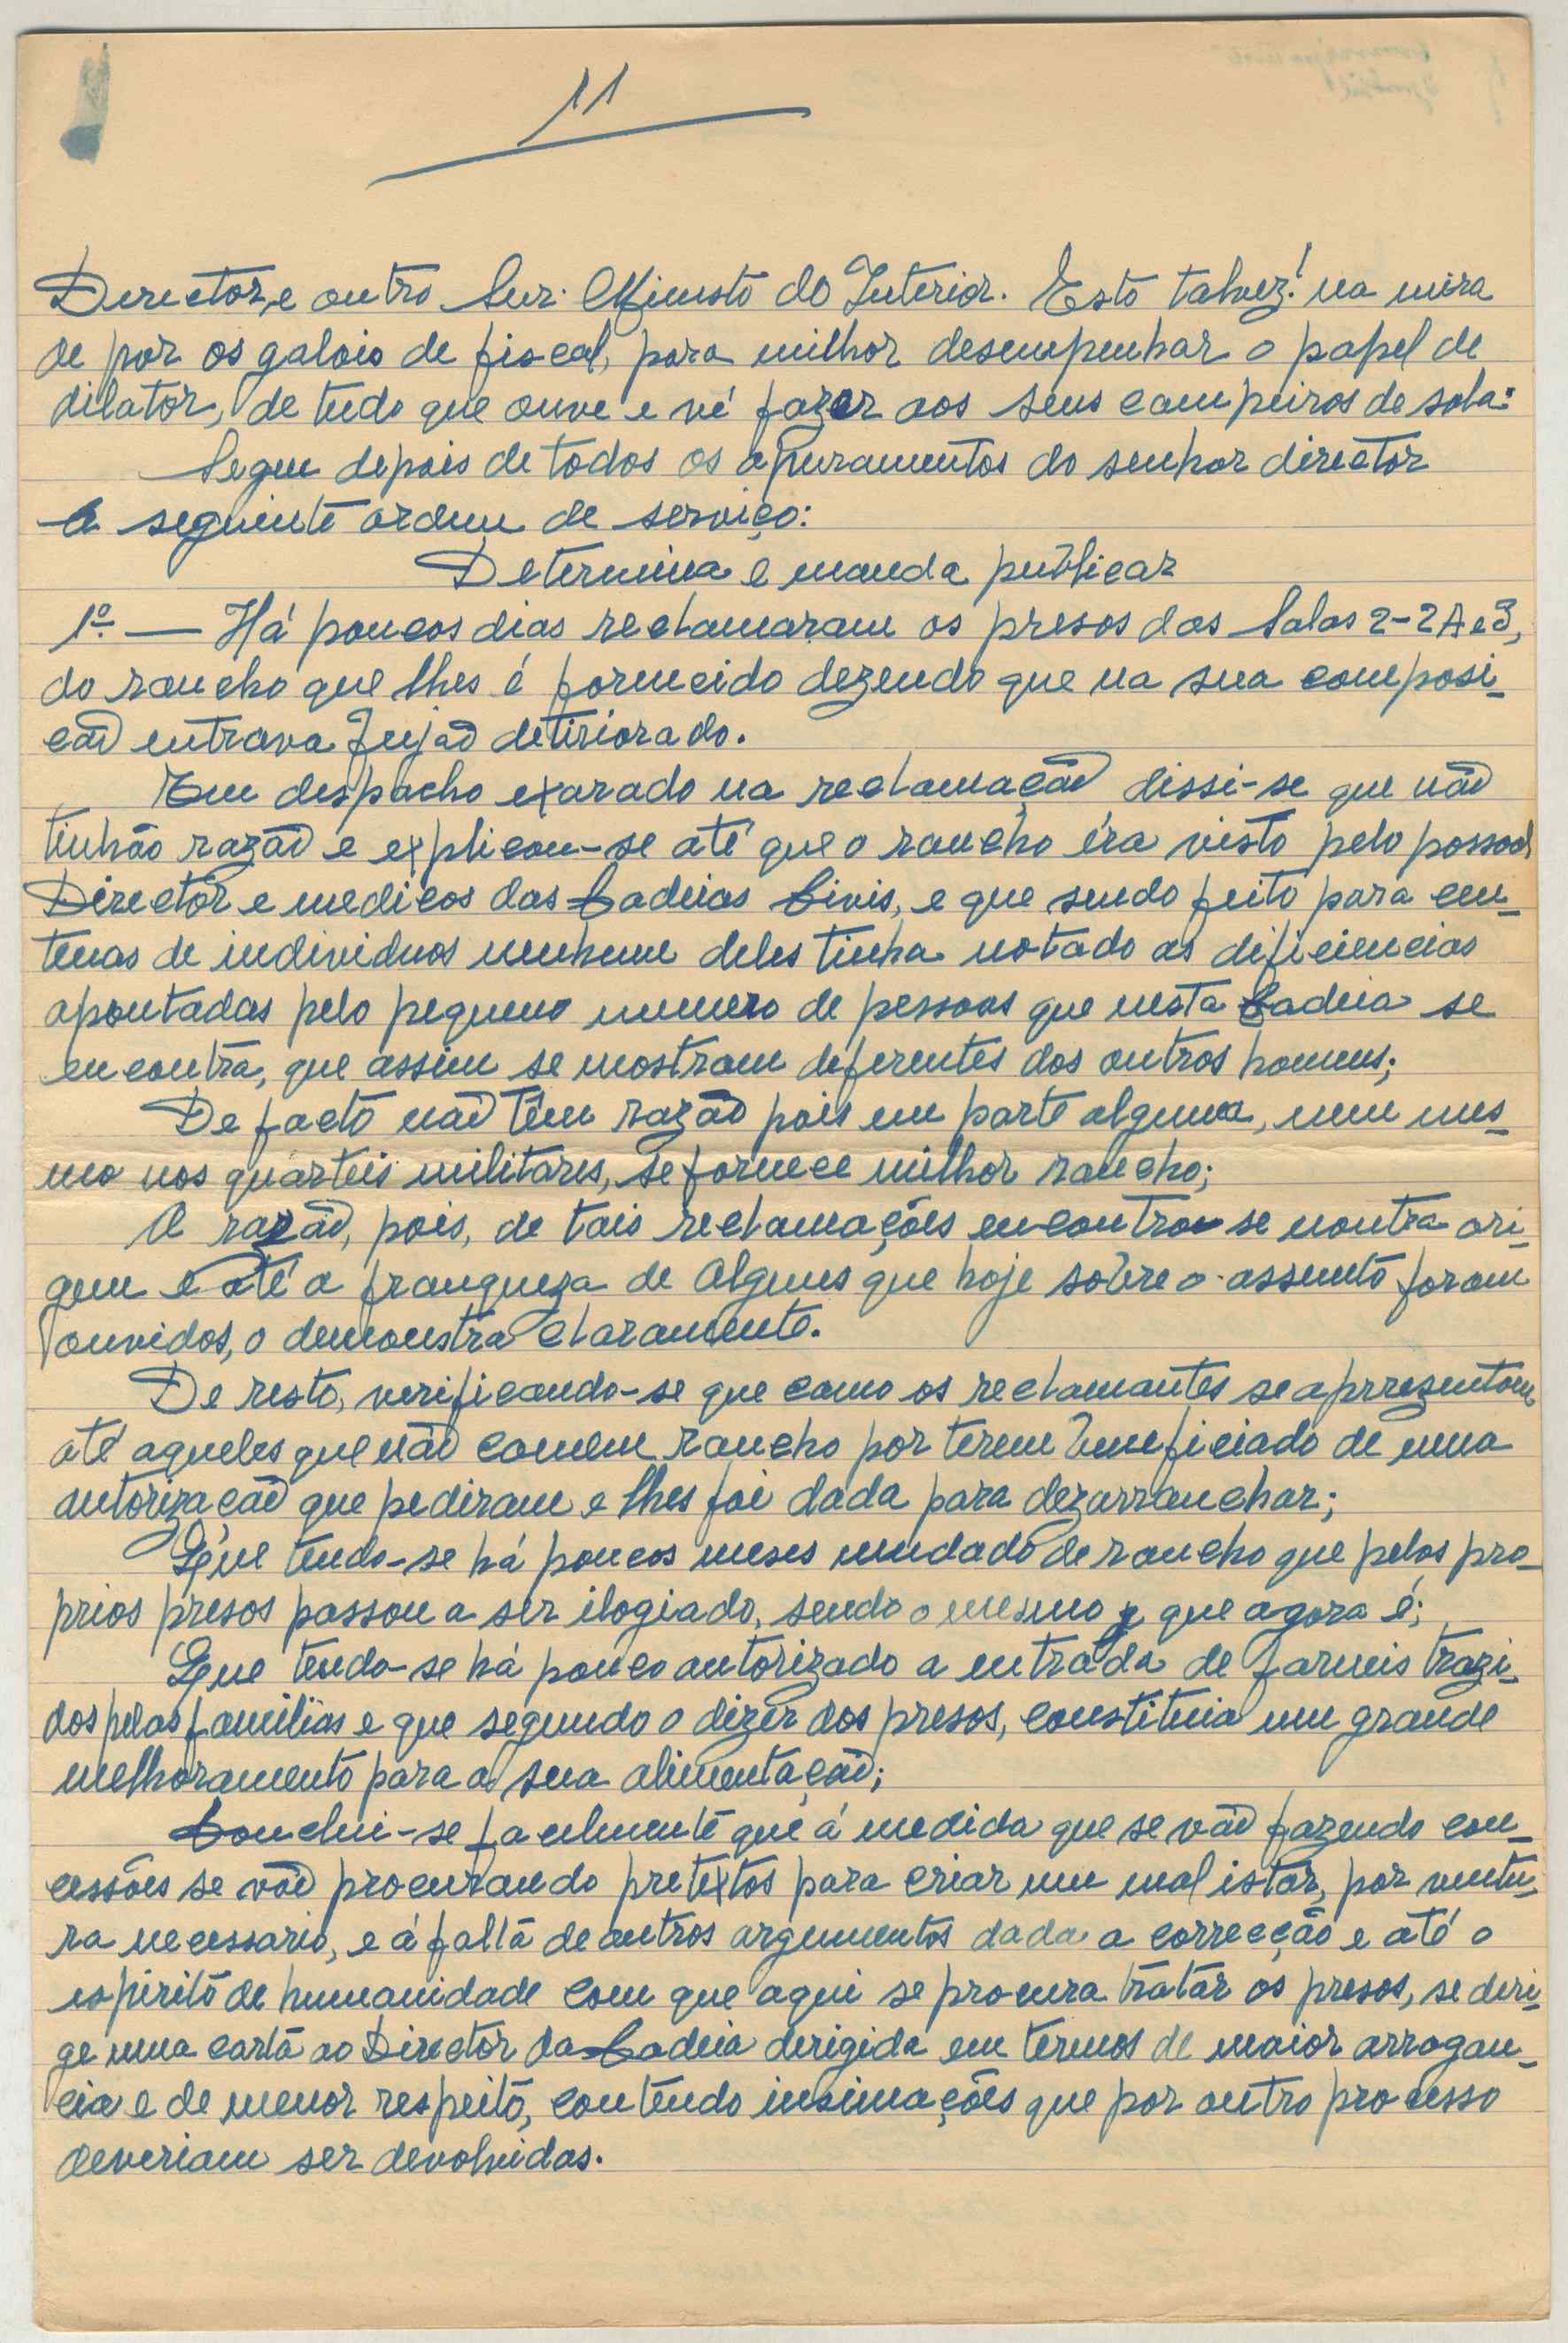 11
Director, e outro Snr. Ministo do Interior. Esto talvez! na mira
de por os galois de fiscal, para milhor desempenhar o papel de
dilator, de tudo que ouve e vê fazer aos seus campeiros de sala:
Segue depois de todos os apuramentos do senhor director
a seguinte ordem de serviço:
Determina e manda publicar
1º. — Há poucos dias reclamaram os presos das Salas 2-2A e 3,
do rancho que lhes é fornecido dezendo que na sua composi-
cão entrava Feijão detiriorado.
Em despacho exarado na reclamação dissi-se que não
tinhão razão e explicou-se até que o rancho éra visto pelo possoal
Director e medicos das Cadeias Civis, e que sendo feito para cen-
tenas de individuos nenhum deles tinha notado as dificiencias
apontadas pelo pequeno numero de pessoas que nesta Cadeia se
encontra, que assim se mostram diferentes dos outros homens;
De facto não têm razão pois em parte alguma, nem mes-
mo nos quarteis militares, se fornece milhor rancho;
A razão, pois, de tais reclamações encontra se noutra ori-
gem e até a franqueza de Alguns que hoje sobre o assunto foram
ouvidos, o demonstra claramente.
De resto, verificando-se que como os reclamantes se aprrezentam
até aqueles que não comem rancho por terem beneficiado de uma
autorizacão que pediram e lhes foi dada para dezarranchar;
Que tendo-se há poucos meses mudado de rancho que pelos pro-
prios presos passou a ser ilogiado, sendo o mesmo que agora é;
Que tendo-se há pouco autorizado a entrada de farneis trazi-
dos pelas familias e que segundo o dizer dos presos, constituia um grande
melhoramento para a sua alimentação;
Conclui-se facilmente que á medida que se vão fazendo con-
cessões se vão procurando pretextos para criar um mal istar, por ventu-
ra necessario, e á falta de outros argumentos dada a correcção e até o
espirito de humanidade com que aqui se procura tratar os presos, se diri-
ge uma carta ao Director da Cadeia dirigida em termos de maior arrogan-
cia e de menor respeito, contendo insinuações que por outro processo
deveriam ser devolvidas.